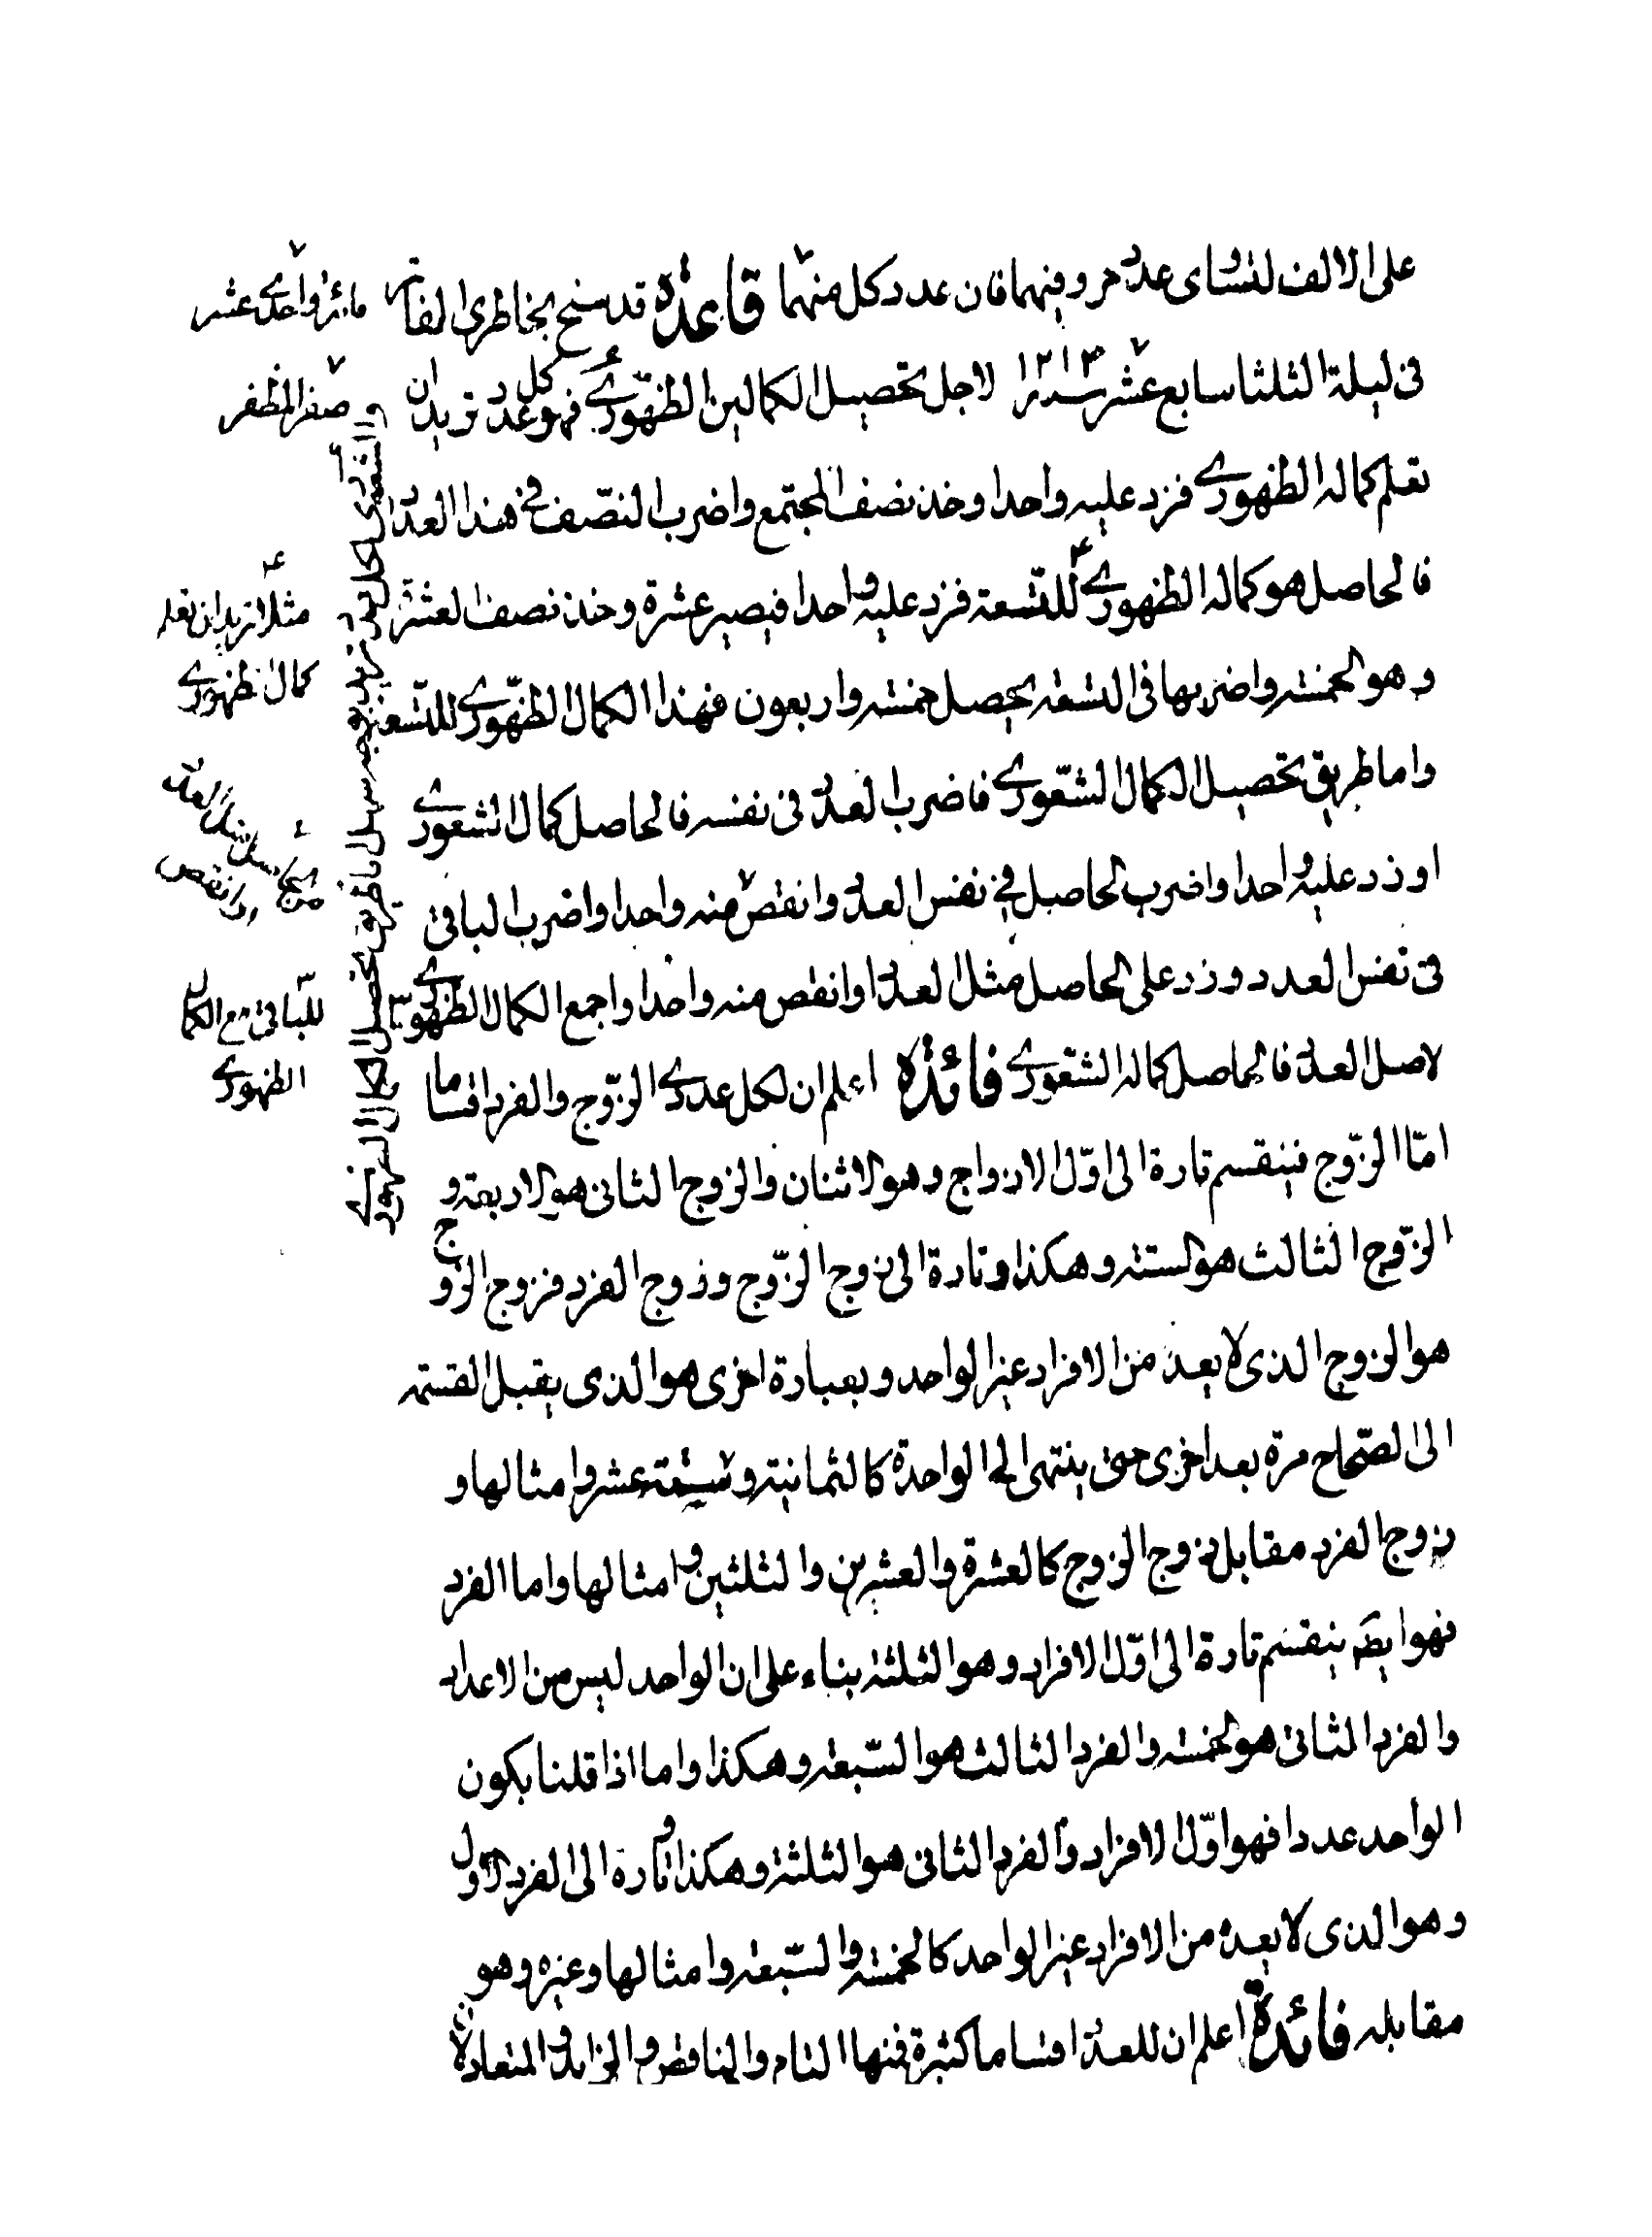 على الالف لتساوى عدد حروفهما فان عدد كل منهما قاعدة قد سنح بخاطرى الفاتر
فى ليلة الثلثا سابع عشر سنة ١٢١٣ لاجل تحصيل الكمالين الظهورى فهو كل عدد تريد ان
تعلم كماله الظهورى فزد عليه واحدا وخذ نصف المجتمع واضرب النصف فى هذا العدد
فالحاصل هو كماله الظهورى للتسعة فزد عليه واحدا فيصير عشرة وخذ نصف العشرة
وهو الخمسة واضربها فى التسعة يحصل خمسة واربعون فهذا الكمال الظهورى للتسعة
واما طريق تحصيل الكمال الشعورى فاضرب العدد فى نفسه فالحاصل كمال الشعورى
او زد عليه واحدا واضرب الحاصل فى نفس العدد وانقص منه واحدا واضرب الباقى
فى نفس العدد وزد على الحاصل مثل العدد او انقص منه واحدا واجمع الكمال الظهورى
لاصل العدد فالحاصل كماله الشعورى فائدة اعلم ان لكل عددى الزوج والفرد اقساما
امّا الزّوج فينقسم تارة الى اوّل الازواج وهو الاثنان والزوج الثانى هو الاربعة و
الزّوج الثالث هو الستة وهكذا وتارة الى زوج الزّوج وزوج الفرد فزوج الزوج
هو الزوج الذى لا يعدّه من الافراد غير الواحد وبعبارة اخرى هو الذى يقبل القسمة
الى الصّحاح مرة بعد اخرى حتى ينتهى الى الواحدة كالثمانية وستة عشر وامثالها و
زوج الفرد مقابل زوج الزوج كالعشرة والعشرين والثلثين وامثالها واما الفرد
فهو ايضا ينقسم تارة الى اوّل الافراد وهو الثلثة بناء على ان الواحد ليس من الاعداد
والفرد الثانى هو الخمسة والفرد الثالث هو السّبعة وهكذا واما اذا قلنا بكون
الواحد عددا فهو اوّل الافراد والفرد الثانى هو الثلثة وهكذا وتارة الى الفرد الاول
وهو الذى لا يعدّه من الافراد غير الواحد كالخمسة والسّبعة وامثالها وغيره وهو
مقابله فائدة اعلم ان للعدد اقساما كثيرة فمنها التام والناقص والزايد والمتعادلان
مائة واحدى عشر
صفر المظفر
مثلا تريد ان تعلم
كمال ظهورى
للباقى مع الكمال
الظهورى